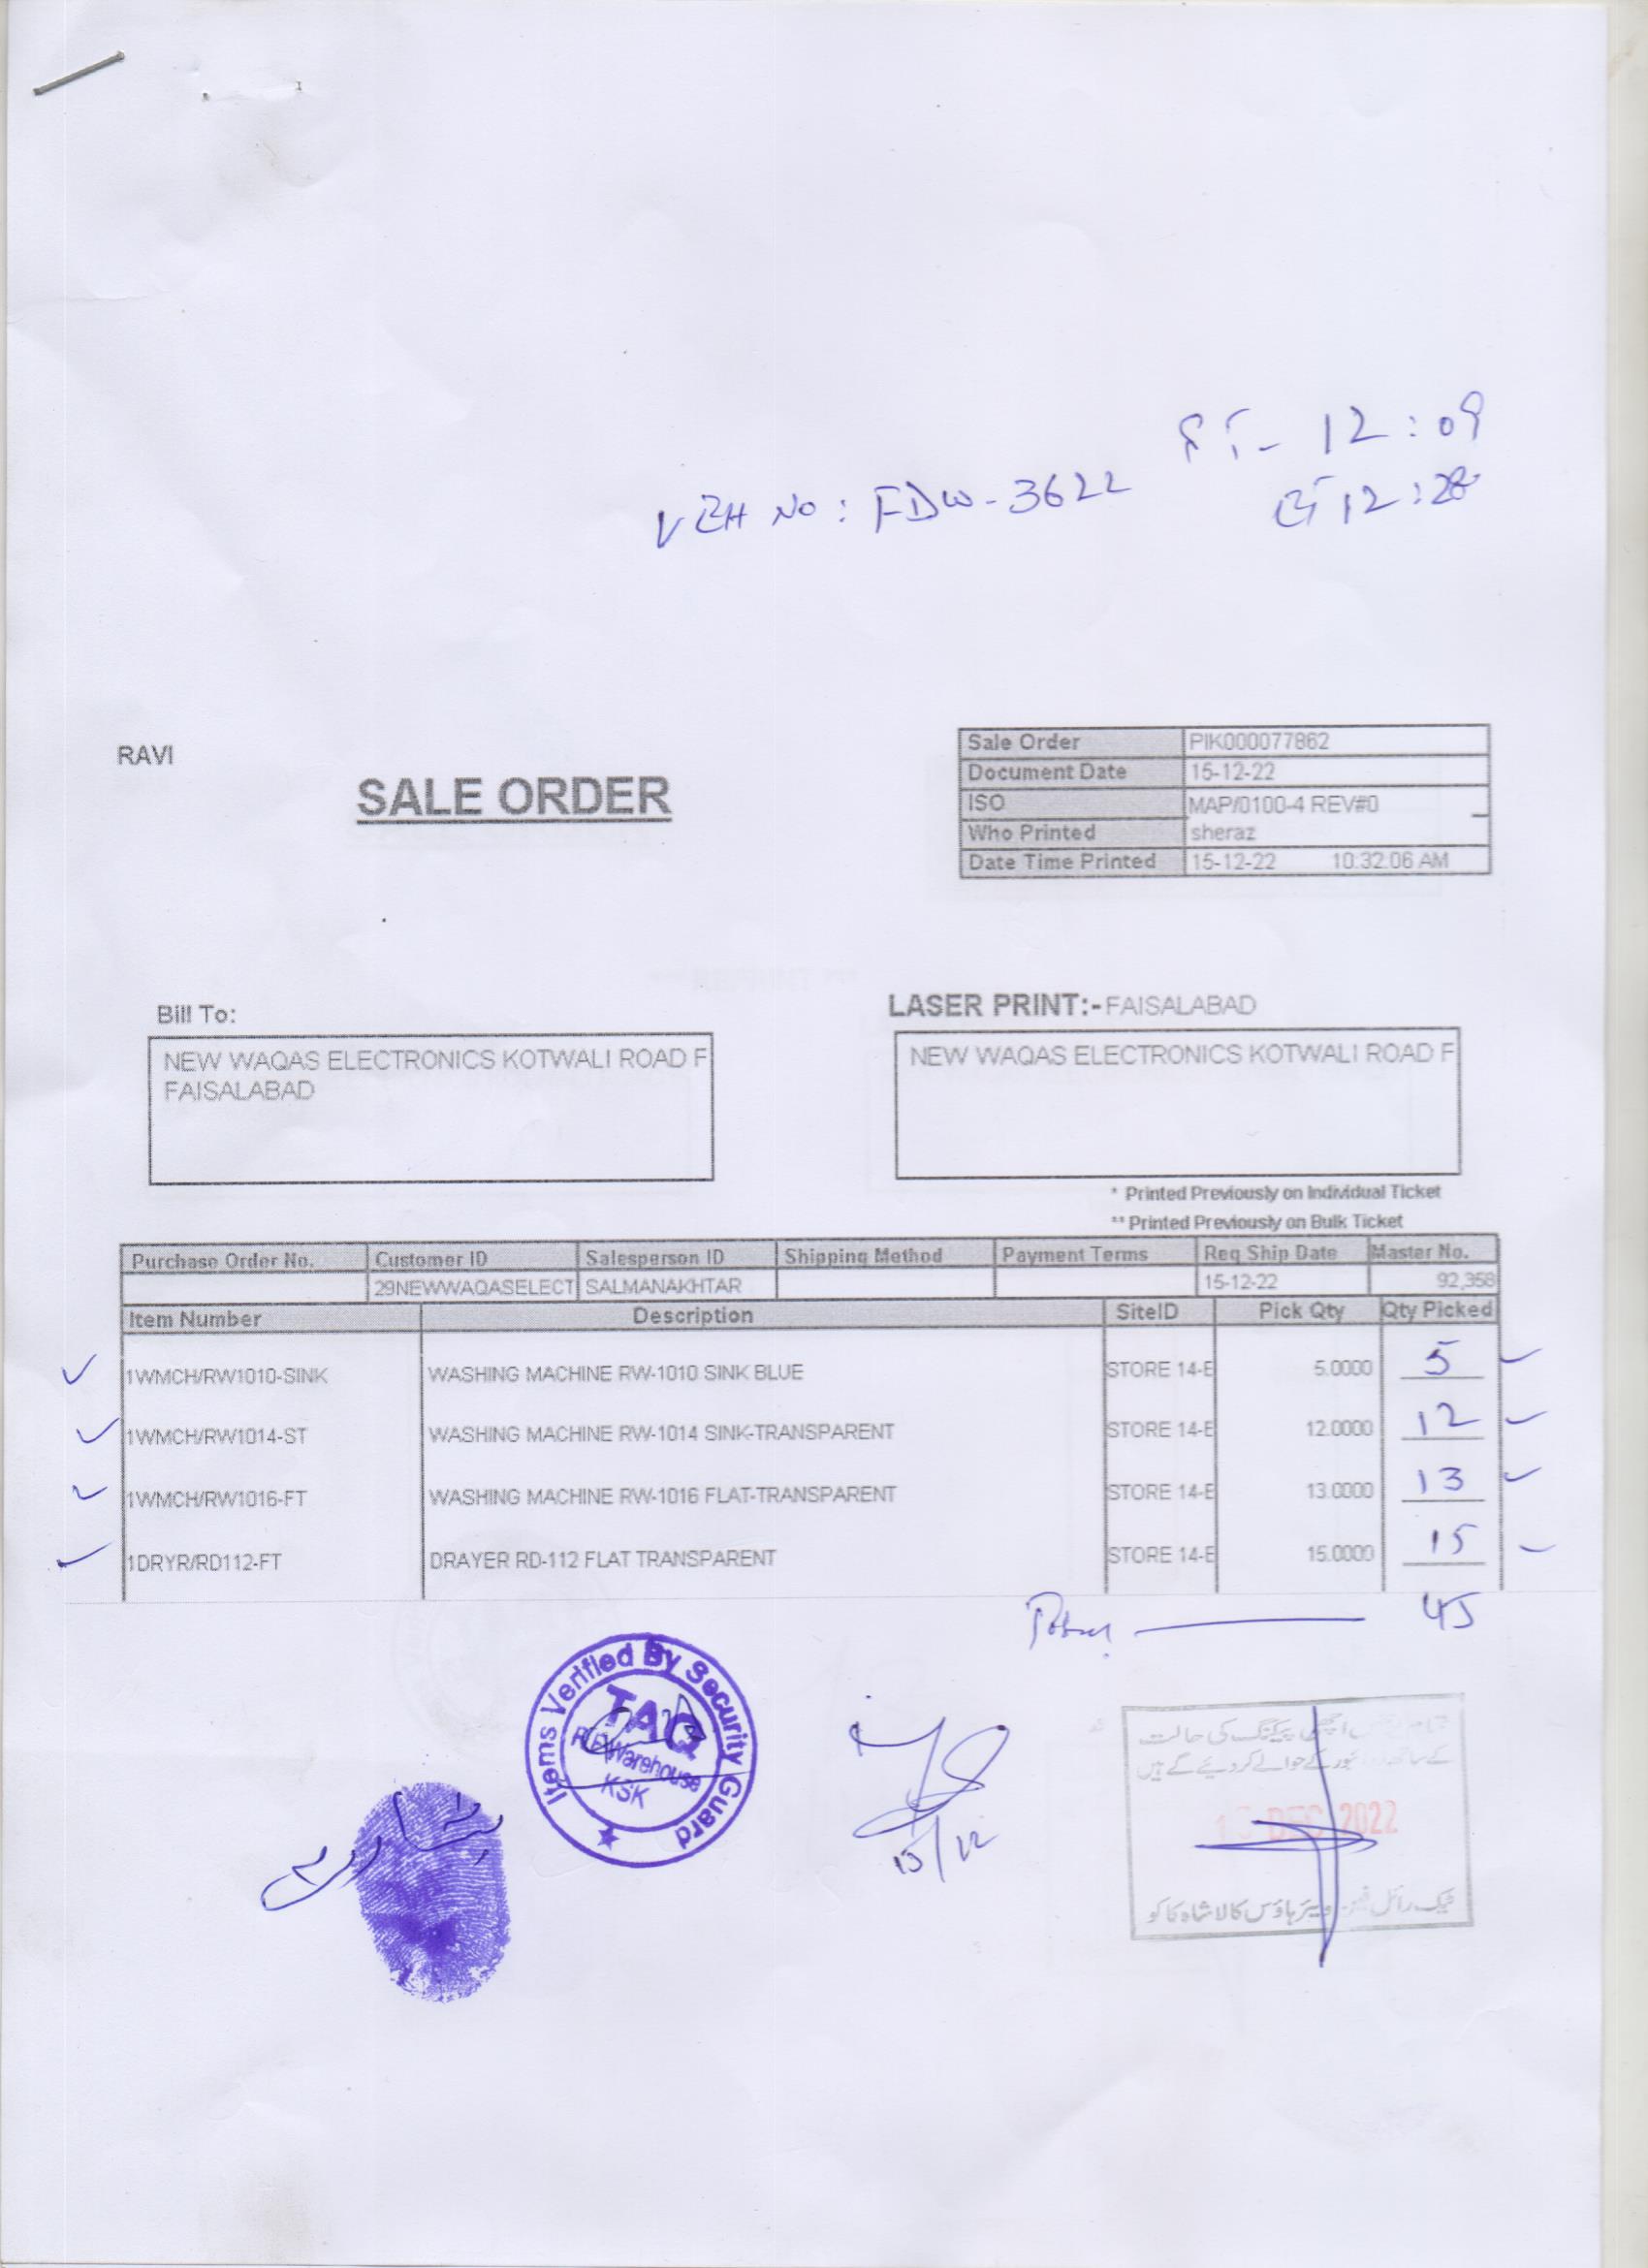 ST- 12:09
VEH NO: FDW-3622
ET 12:28
RAVI
SALE ORDER
Sale Order PIK000077862
Document Date 15-12-22
ISO MAP/0100-4 REV#0
Who Printed sheraz
Date Time Printed 15-12-22 10:32:06 AM
Bill To:
NEW WAQAS ELECTRONICS KOTWALI ROAD F
FAISALABAD
LASER PRINT:- FAISALABAD
NEW WAQAS ELECTRONICS KOTWALI ROAD F
* Printed Previously on Individual Ticket
** Printed Previously on Bulk Ticket
Purchase Order No. Customer ID Salesperson ID Shipping Method Payment Terms Req Ship Date Master No.
29NEWWAQASELECT SALMANAKHTAR 15-12-22 92,358
Item Number Description SiteID Pick Qty Qty Picked
1WMCH/RW1010-SINK WASHING MACHINE RW-1010 SINK BLUE STORE 14-E 5.0000 5
1WMCH/RW1014-ST WASHING MACHINE RW-1014 SINK-TRANSPARENT STORE 14-E 12.0000 12
1WMCH/RW1016-FT WASHING MACHINE RW-1016 FLAT-TRANSPARENT STORE 14-E 13.0000 13
1DRYR/RD112-FT DRAYER RD-112 FLAT TRANSPARENT STORE 14-E 15.0000 15
45
Items Verified By Security Guard
TAQ
Warehouse
KSK
15/12
اچھی پیکنگ کی حالت
کے حوالے کر دیئے گئے ہیں
DEC 2022
ویئر ہاؤس کالا شاہ کاکو